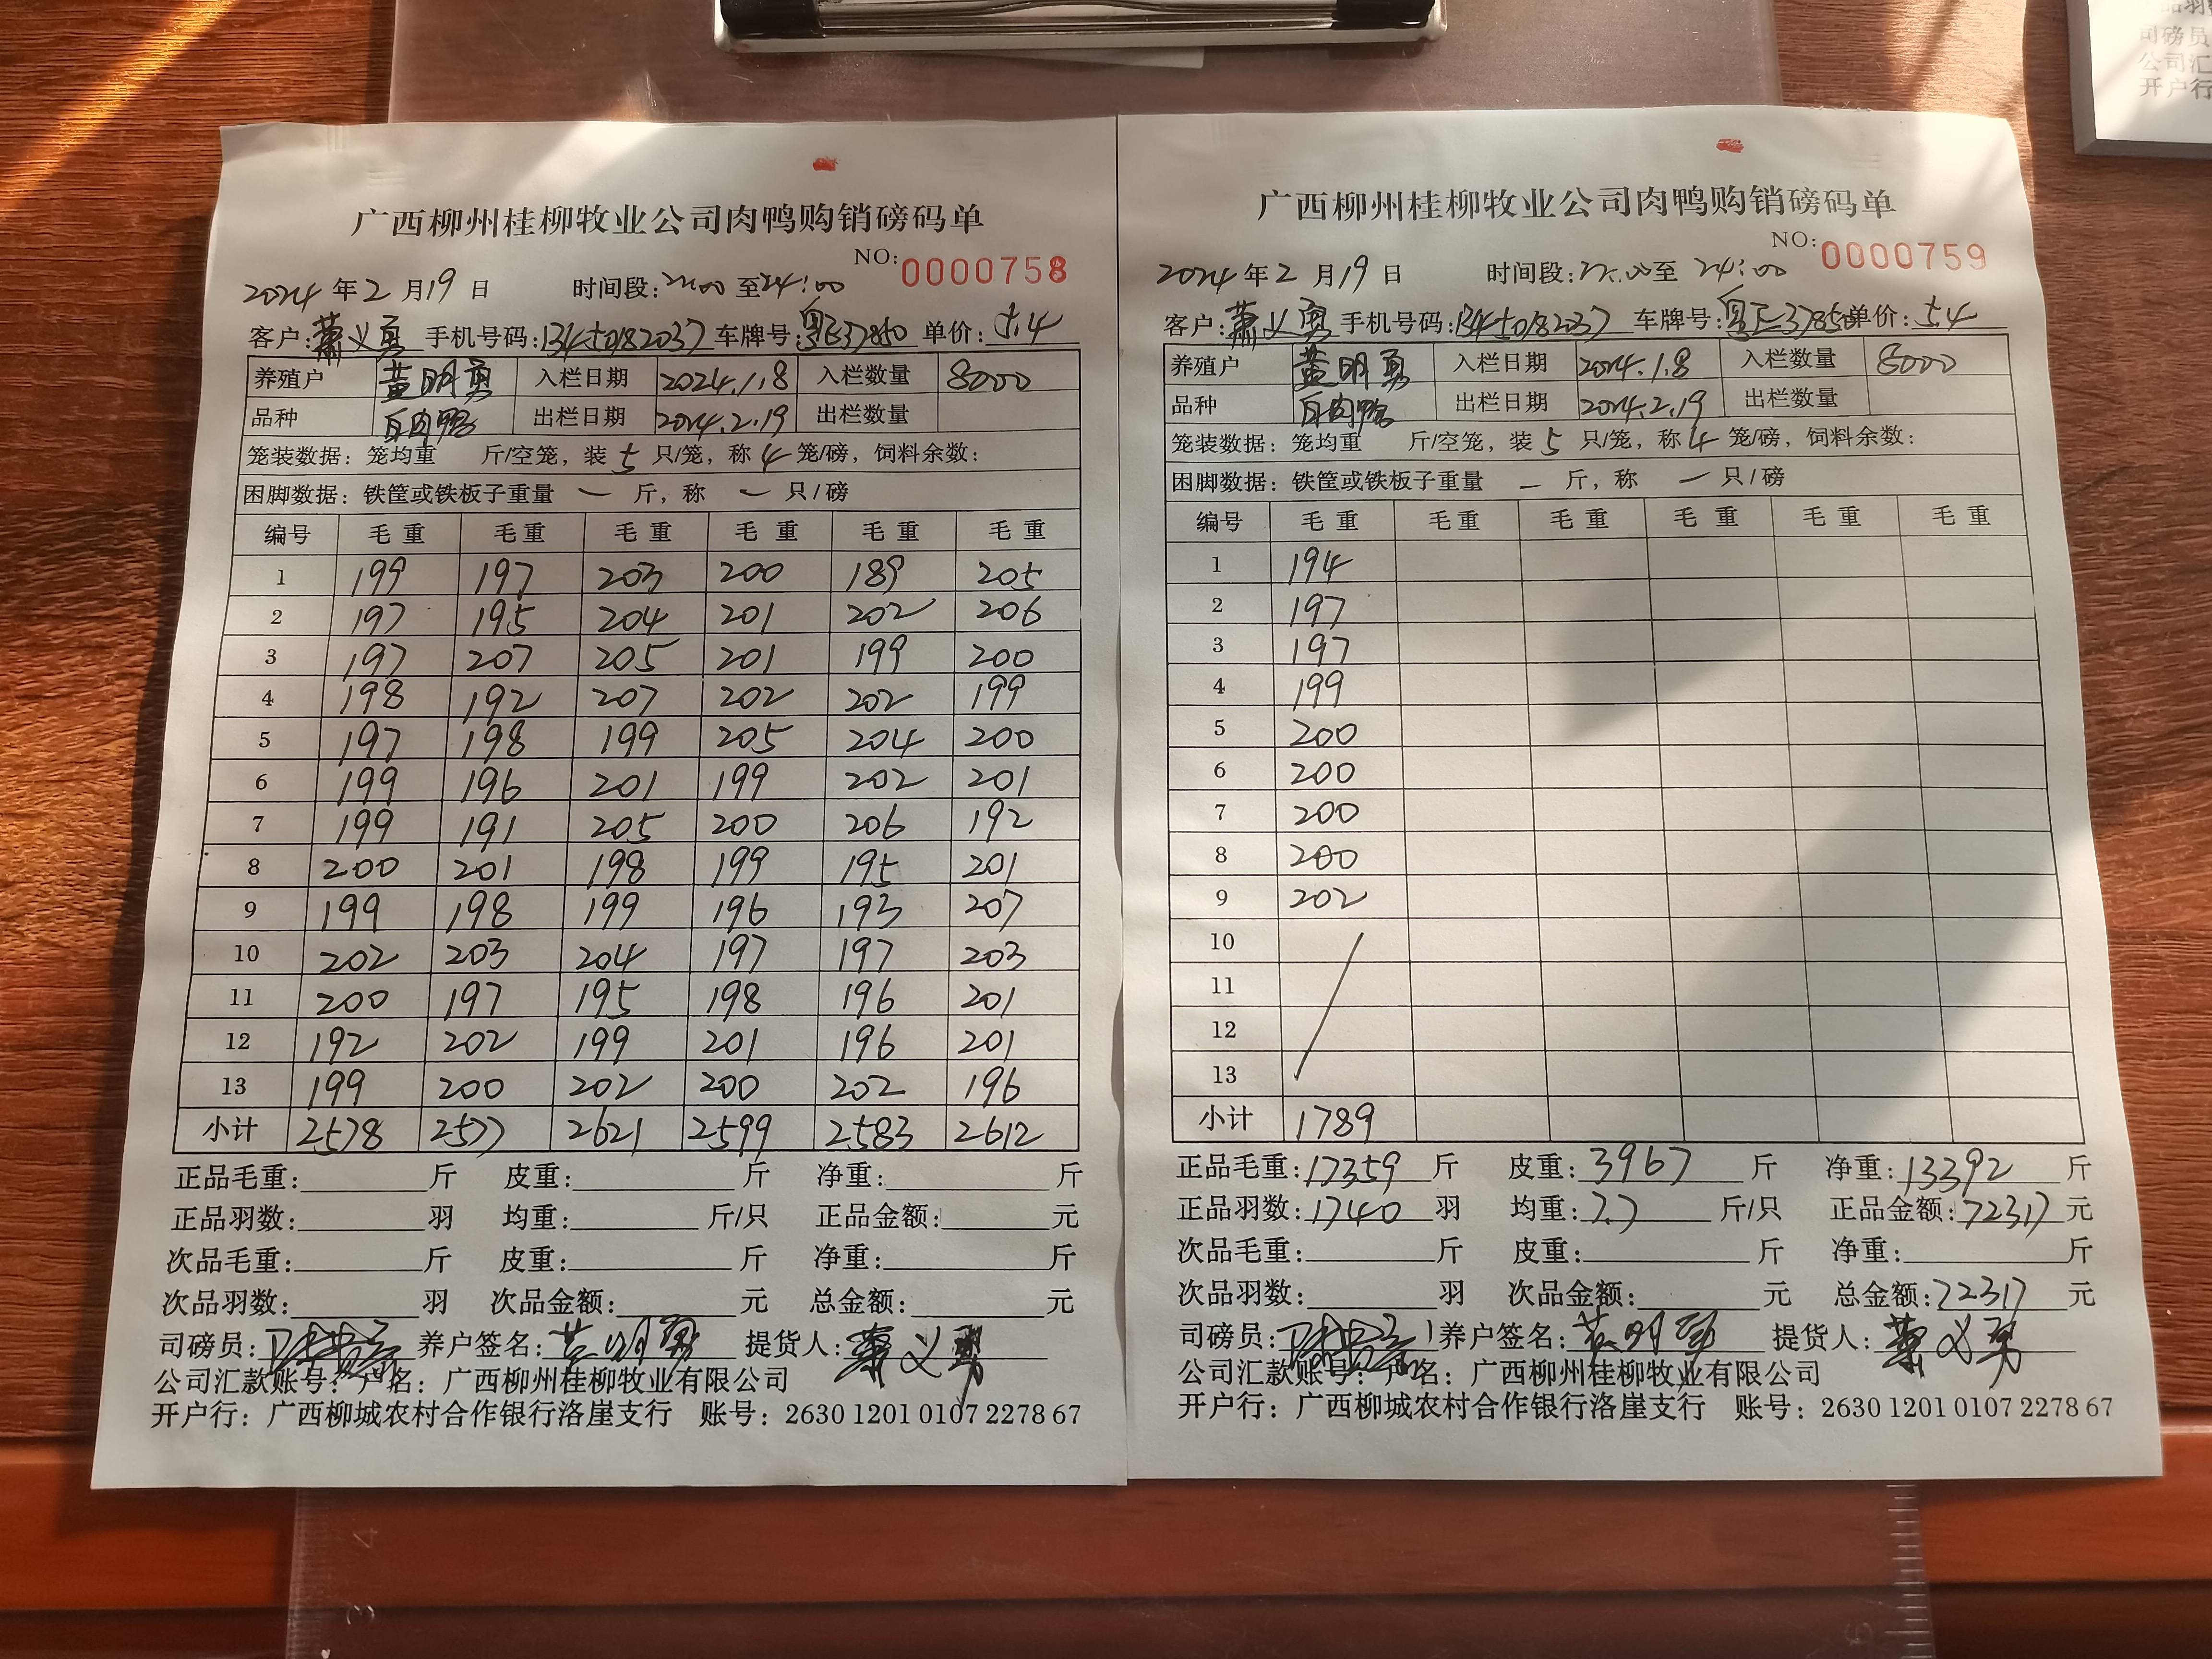 广西柳州桂柳牧业公司肉鸭购销磅码单
NO:0000758
2024年2月19日 时间段:22:00至24:00
客户:萧义勇 手机号码:13450182037 车牌号:粤E37850 单价:5.4
养殖户 黄明勇 入栏日期 2024.1.8 入栏数量 8000
品种 白肉鸭 出栏日期 2024.2.19 出栏数量
笼装数据:笼均重 斤/空笼,装5只/笼,称4笼/磅,饲料余数:
困脚数据:铁筐或铁板子重量 一 斤,称 一 只/磅
编号 毛重 毛重 毛重 毛重 毛重 毛重
1 199 197 203 200 189 205
2 197 195 204 201 202 206
3 197 207 205 201 199 200
4 198 192 207 202 202 199
5 197 198 199 205 204 200
6 199 196 201 199 202 201
7 199 191 205 200 206 192
8 200 201 198 199 195 201
9 199 198 199 196 193 207
10 202 203 204 197 197 203
11 200 197 195 198 196 201
12 192 202 199 201 196 201
13 199 200 202 200 202 196
小计 2578 2577 2621 2599 2583 2612
正品毛重: 斤 皮重: 斤 净重: 斤
正品羽数: 羽 均重: 斤/只 正品金额: 元
次品毛重: 斤 皮重: 斤 净重: 斤
次品羽数: 羽 次品金额: 元 总金额: 元
司磅员: 养户签名:黄明勇 提货人:萧义勇
公司汇款账号:户名:广西柳州桂柳牧业有限公司
开户行:广西柳城农村合作银行洛崖支行 账号:2630 1201 0107 2278 67
广西柳州桂柳牧业公司肉鸭购销磅码单
NO:0000759
2024年2月19日 时间段:22:00至24:00
客户:萧义勇 手机号码:13450182037 车牌号:粤E37850 单价:5.4
养殖户 黄明勇 入栏日期 2024.1.8 入栏数量 8000
品种 白肉鸭 出栏日期 2024.2.19 出栏数量
笼装数据:笼均重 斤/空笼,装5只/笼,称4笼/磅,饲料余数:
困脚数据:铁筐或铁板子重量 一 斤,称 一 只/磅
编号 毛重 毛重 毛重 毛重 毛重 毛重
1 194
2 197
3 197
4 199
5 200
6 200
7 200
8 200
9 202
10
11
12
13
小计 1789
正品毛重:17359斤 皮重:3967斤 净重:13392斤
正品羽数:1740羽 均重:7.7斤/只 正品金额:72317元
次品毛重: 斤 皮重: 斤 净重: 斤
次品羽数: 羽 次品金额: 元 总金额:72317元
司磅员: 养户签名:黄明勇 提货人:萧义勇
公司汇款账号:户名:广西柳州桂柳牧业有限公司
开户行:广西柳城农村合作银行洛崖支行 账号:2630 1201 0107 2278 67
司磅员
公司汇
开户行